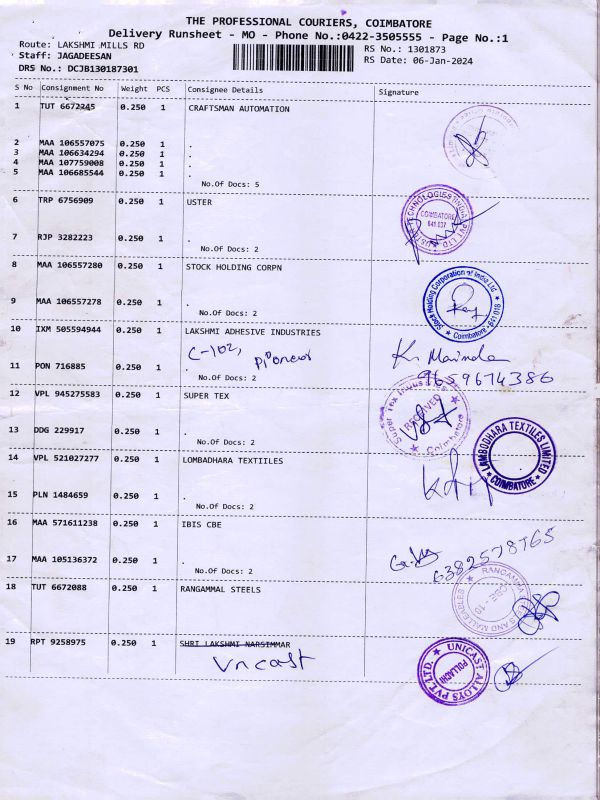 THE PROFESSIONAL COURIERS, COIMBATORE
Delivery Runsheet - MO - Phone No.:0422-3505555 - Page No.:1
Route: LAKSHMI MILLS RD
RS No.: 1301873
Staff: JAGADEESAN
RS Date: 06-Jan-2024
DRS No.: DCJB130187301
S No Consignment No Weight PCS Consignee Details Signature
1 TUT 6672245 0.250 1 CRAFTSMAN AUTOMATION
2 MAA 106557075 0.250 1 .
3 MAA 106634294 0.250 1 .
4 MAA 107759008 0.250 1 .
5 MAA 106685544 0.250 1 .
No.Of Docs: 5
6 TRP 6756909 0.250 1 USTER
USTER TECHNOLOGIES INDIA PVT LTD
COIMBATORE
641 037
7 RJP 3282223 0.250 1 .
No.Of Docs: 2
8 MAA 106557280 0.250 1 STOCK HOLDING CORPN
Stock Holding Corporation of India Ltd
Coimbatore-641 018
9 MAA 106557278 0.250 1 .
No.Of Docs: 2
10 IXM 505594944 0.250 1 LAKSHMI ADHESIVE INDUSTRIES
C-102,
11 PON 716885 0.250 1 .
No.Of Docs: 2
9659674386
12 VPL 945275583 0.250 1 SUPER TEX
Super Tex Industries
RECEIVED
Coimbatore
13 DDG 229917 0.250 1 .
No.Of Docs: 2
14 VPL 521027277 0.250 1 LOMBADHARA TEXTIILES
LAMBODHARA TEXTILES LIMITED
COIMBATORE
15 PLN 1484659 0.250 1 .
No.Of Docs: 2
16 MAA 571611238 0.250 1 IBIS CBE
17 MAA 105136372 0.250 1 .
No.Of Docs: 2
6382578765
18 TUT 6672088 0.250 1 RANGAMMAL STEELS
19 RPT 9258975 0.250 1 SHRI LAKSHMI NARSIMMAR
Unicast
UNICAST ALLOYS PVT. LTD.
POLLACHI